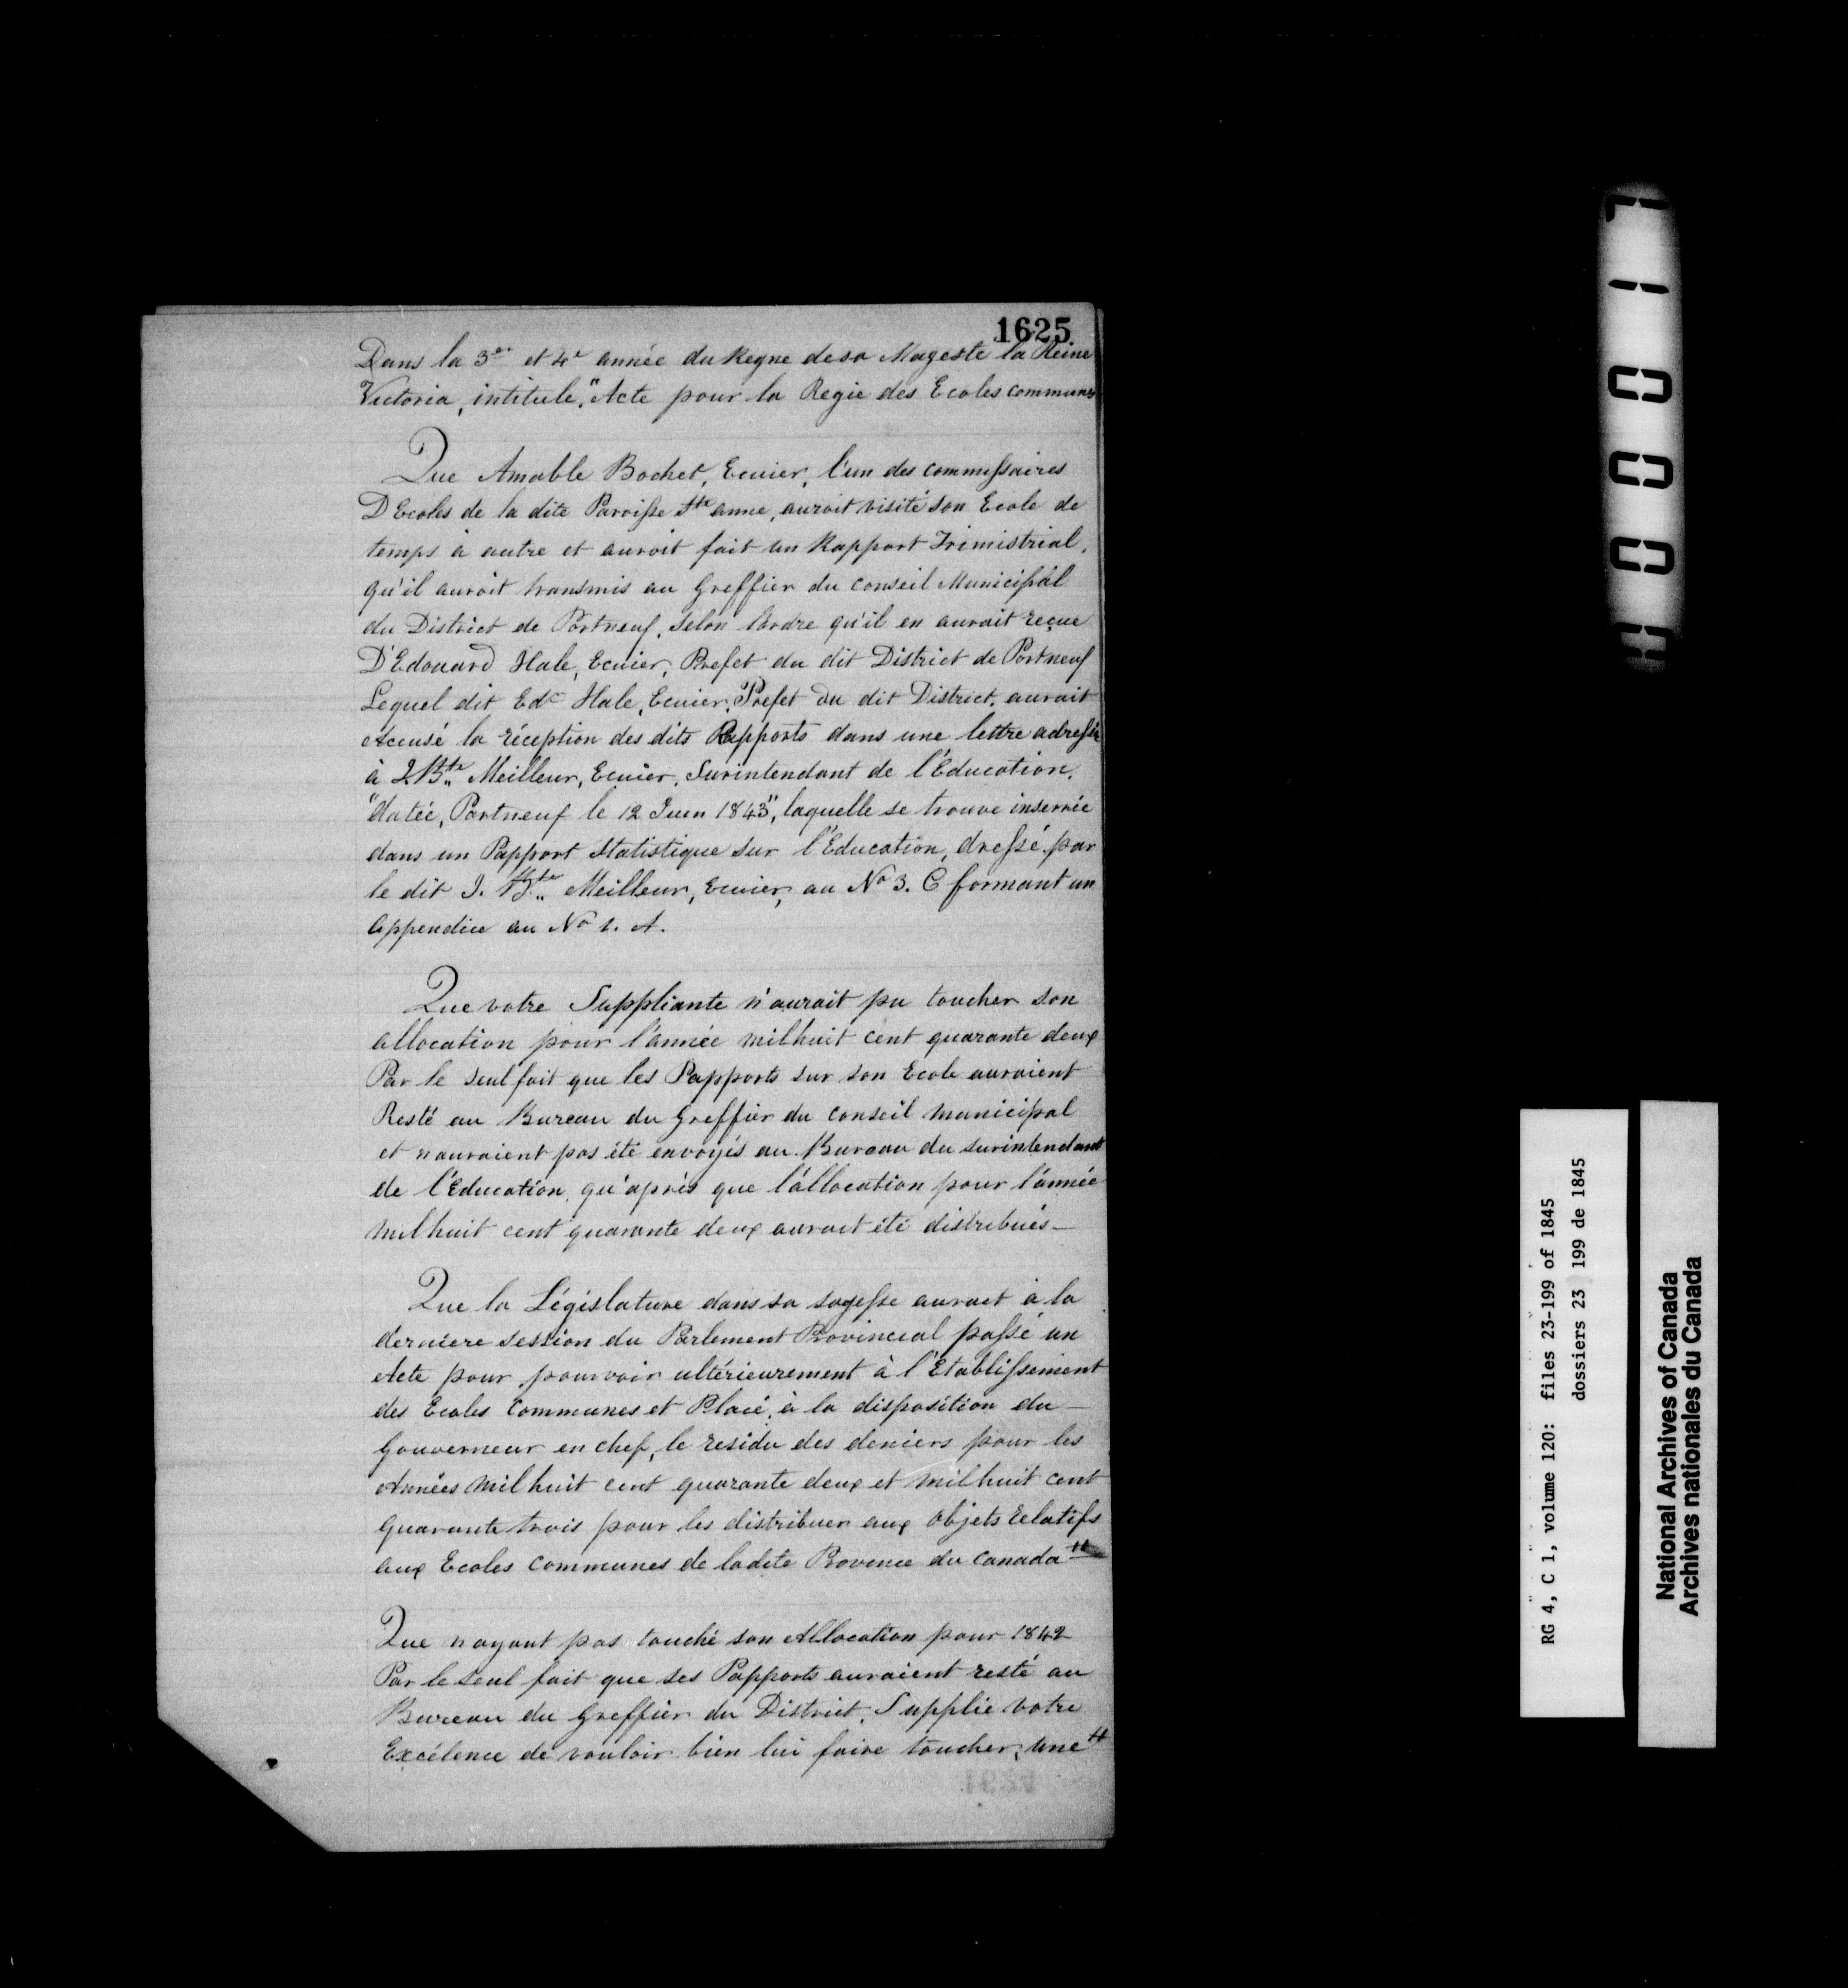 1625
Dans la 3em et 4e année du Regne de sa Mageste la Reine
Victoria, intitule, "Acte pour la Regie des Ecoles communes
Que Amable Bochet, Ecuier, l'un des commissaires
D Ecoles de la dite Paroisse Ste anne, auroit visité son Ecole de
temps à autre et auroit fait un Rapport Trimistrial,
qu'il auroit transmis au Greffier du Conseil Municipal
du District de Portneuf, selon l'ordre qu'il en aurait reçue
D'Edouard Hale, Ecuier, Prefet du dit District de Portneuf
Lequel dit Edd Hale, Ecuier, Prefet du dit District, aurait
Accusé la réception des dits Rapports dans une lettre adressée
à J Bte Meilleur, Ecuier, Surintendant de l'Education,
"datée, Portneuf le 12 Juin 1843", laquelle se trouve inserrée
dans un Rapport Statistique sur l'Education, dressé par
le dit J. Bte Meilleur, Ecuier, au No 3. C formant un
Appendice au No 1. A.
Que votre Suppliante n'aurait pu toucher son
allocation pour l'année milhuit cent quarante deux
Par le seul fait que les Rapports sur son Ecole auraient
Resté au Bureau du Greffier du Conseil municipal
et nauraient pas été envoyés au Bureau du surintendant
de l'Education, qu'après que l'allocation pour l'année
milhuit cent quarante deux aurait été distribués—
Que la Législature dans sa sagesse aurait à la
derniere session du Parlement Provincial passé un
Acte pour pourvoir ultérieurement à l'Etablissement
des Ecoles Communes et Placé, à la disposition du —
Gouverneur en chef, le residu des deniers pour les
Années milhuit cent quarante deux et milhuit cent
quarante trois pour les distribuer aux objets relatifs
aux Ecoles communes de ladite Province du Canada
Que n ayant pas touché son Allocation pour 1842
Par le seul fait que ses Rapports auraient resté au
Bureau du Greffier du District, Supplie votre
Excélence de vouloir bien lui faire toucher, une
RG 4, C 1, volume 120: files 23-199 of 1845
dossiers 23 199 de 1845
National Archives of Canada
Archives nationales du Canada